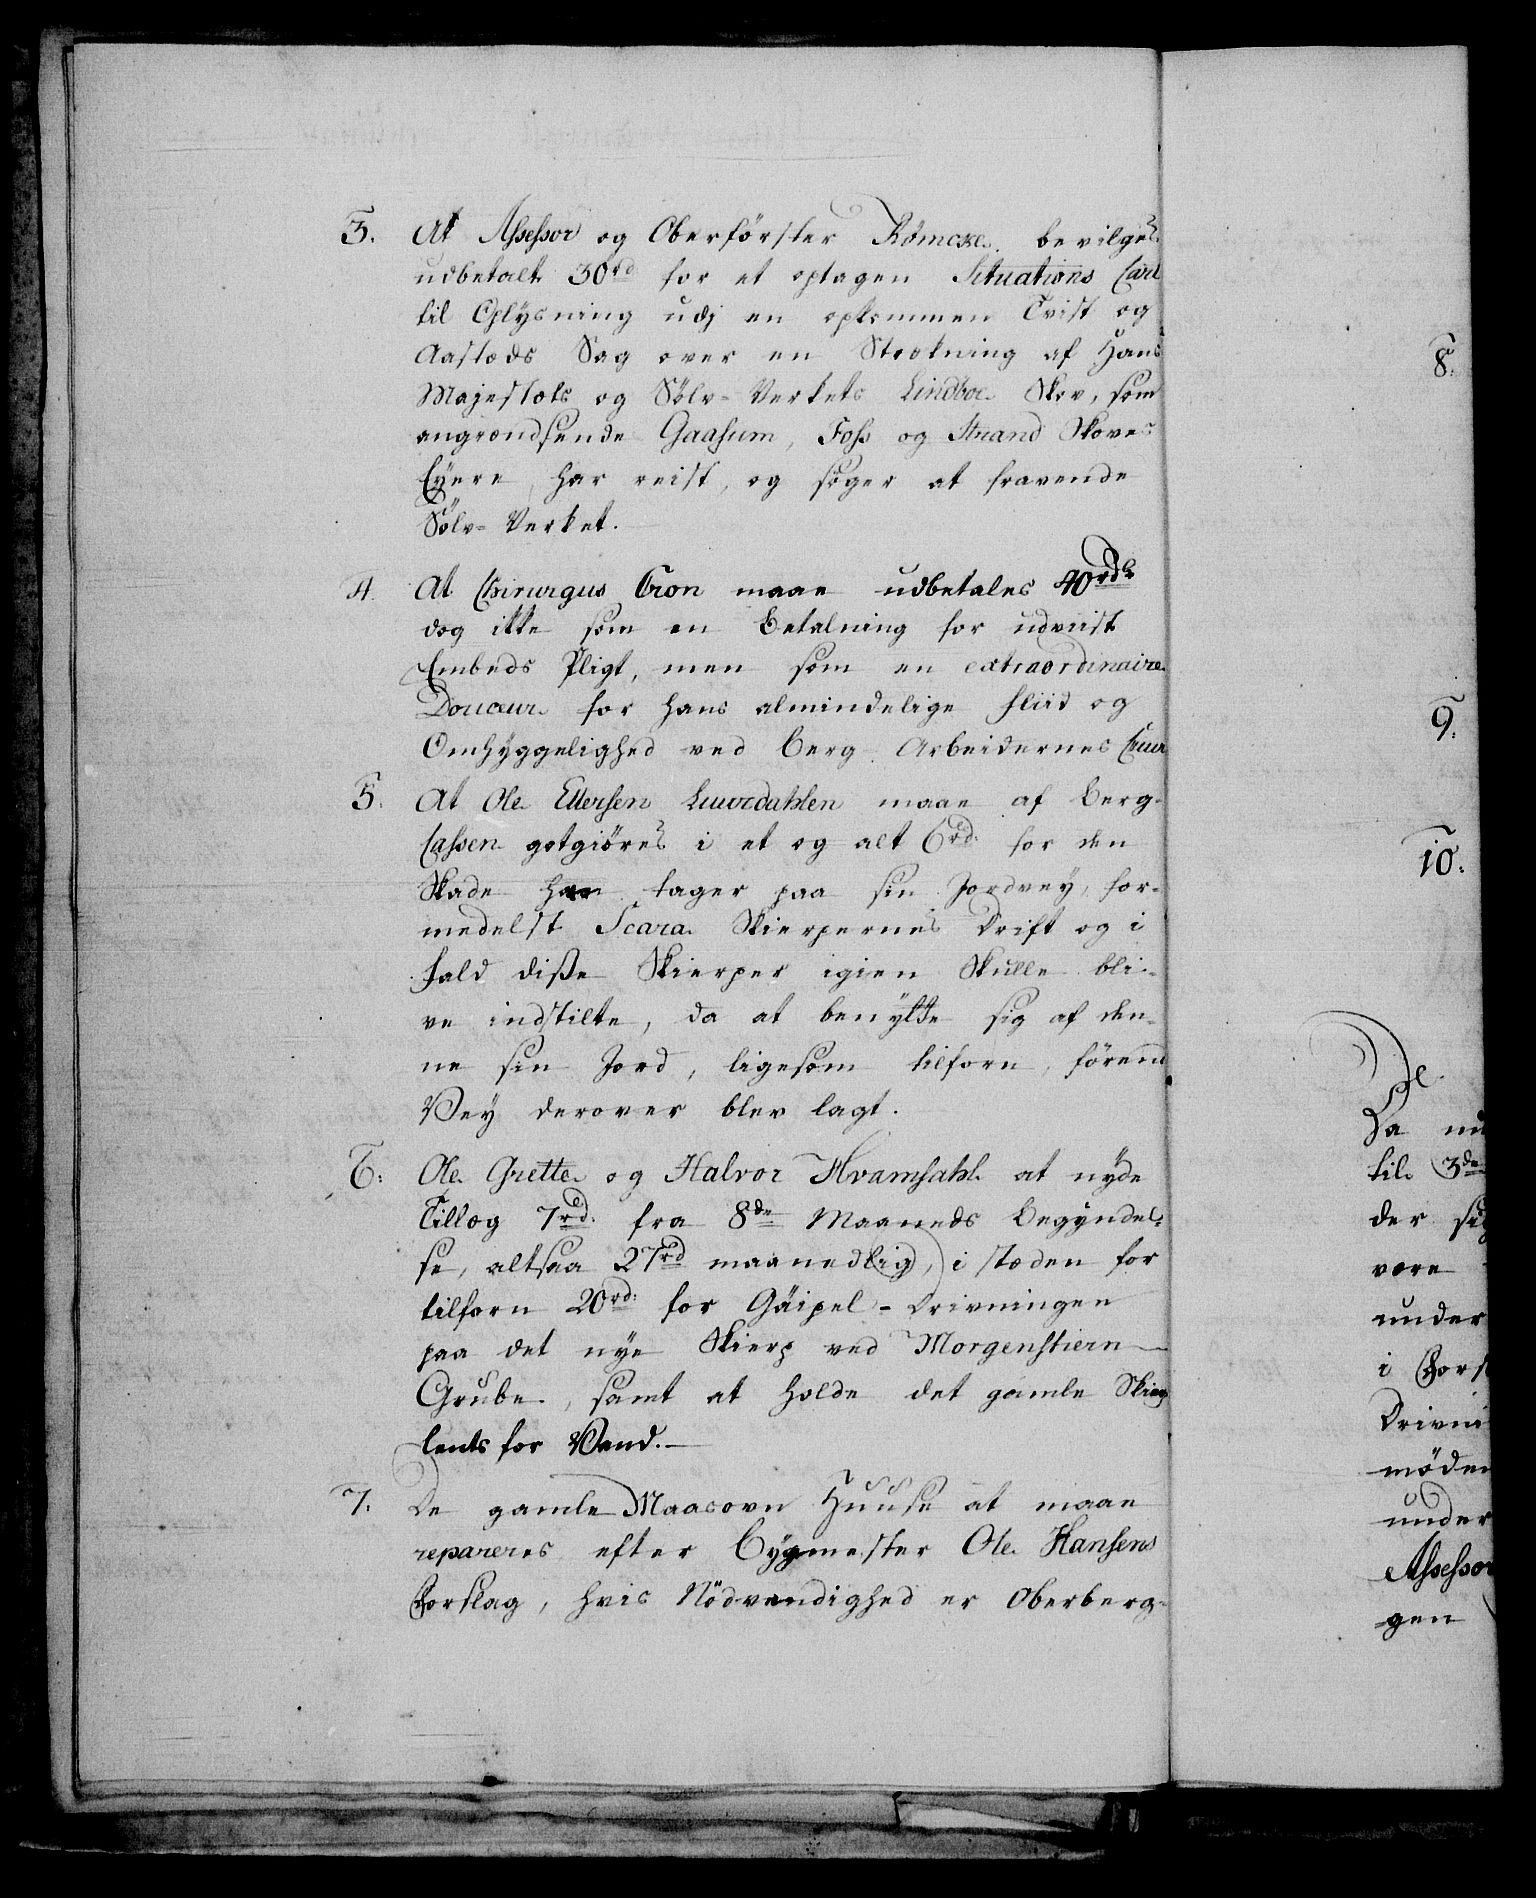 3. At Assessor og Oberförster Römcke bevilges
udbetalt 30rd for et optagen Situations Cart
til Oplysning udj en opkommen Tvist og
Aastæds Sag over en Strækning af Hans
Majestæts og Sölv-Verkets Lindböe Skov, som
angrændsende Gaasum, Foss og Strand Skoves
Eyere, har reist, og söger at fravende
Sölv-Verket.
4. At Chirurgus Cron maae udbetales 40rdr
dog ikke som en Betalning for udviist
Embeds Pligt, men som en extraordinaire
Douceur for hans almindelige Fliid og
Omhyggelighed ved Berg Arbeidernes Cuur
5. At Ole Ellersen Luurdahlen maae af Berg-
Cassen gotgiöres i et og alt 6rd. for den
Skade han tager paa sin Jordvey, for-
medelst Scara Skierpernes Drift og i
fald disse Skierper igien Skulle bli-
ve indstilte, da at benytte sig af den-
ne sin Jord, ligesom tilforn, förend
Vey derover blev lagt.
6. Ole Grette og Halvor Hvamsahl at nyde
Tillæg 7rd. fra 8de Maaneds Begyndel-
se, altsaa 27rd maanedlig, i stæden for
tilforn 20rd: for Gäipel-Drivningen
paa det nye Skierp ved Morgenstiern
Grube, samt at holde det gamle Skierp
lents for Vand.
7. De gamle Maasovn Huuse at maae
repareres efter Bygmester Ole Hansens
Forslag, hvis Nödvendighed er Oberberg-
8.
9.
10.
De
Da nu
til 3de
der sig
være
under
i Fors
Drivni
möden
under
Assessor
-gen